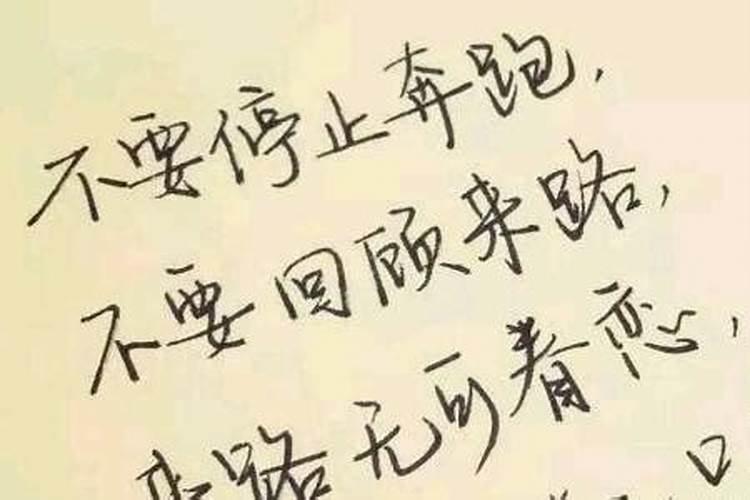 不要停止奔跑,
不要回顾来路,
来路无可眷恋,